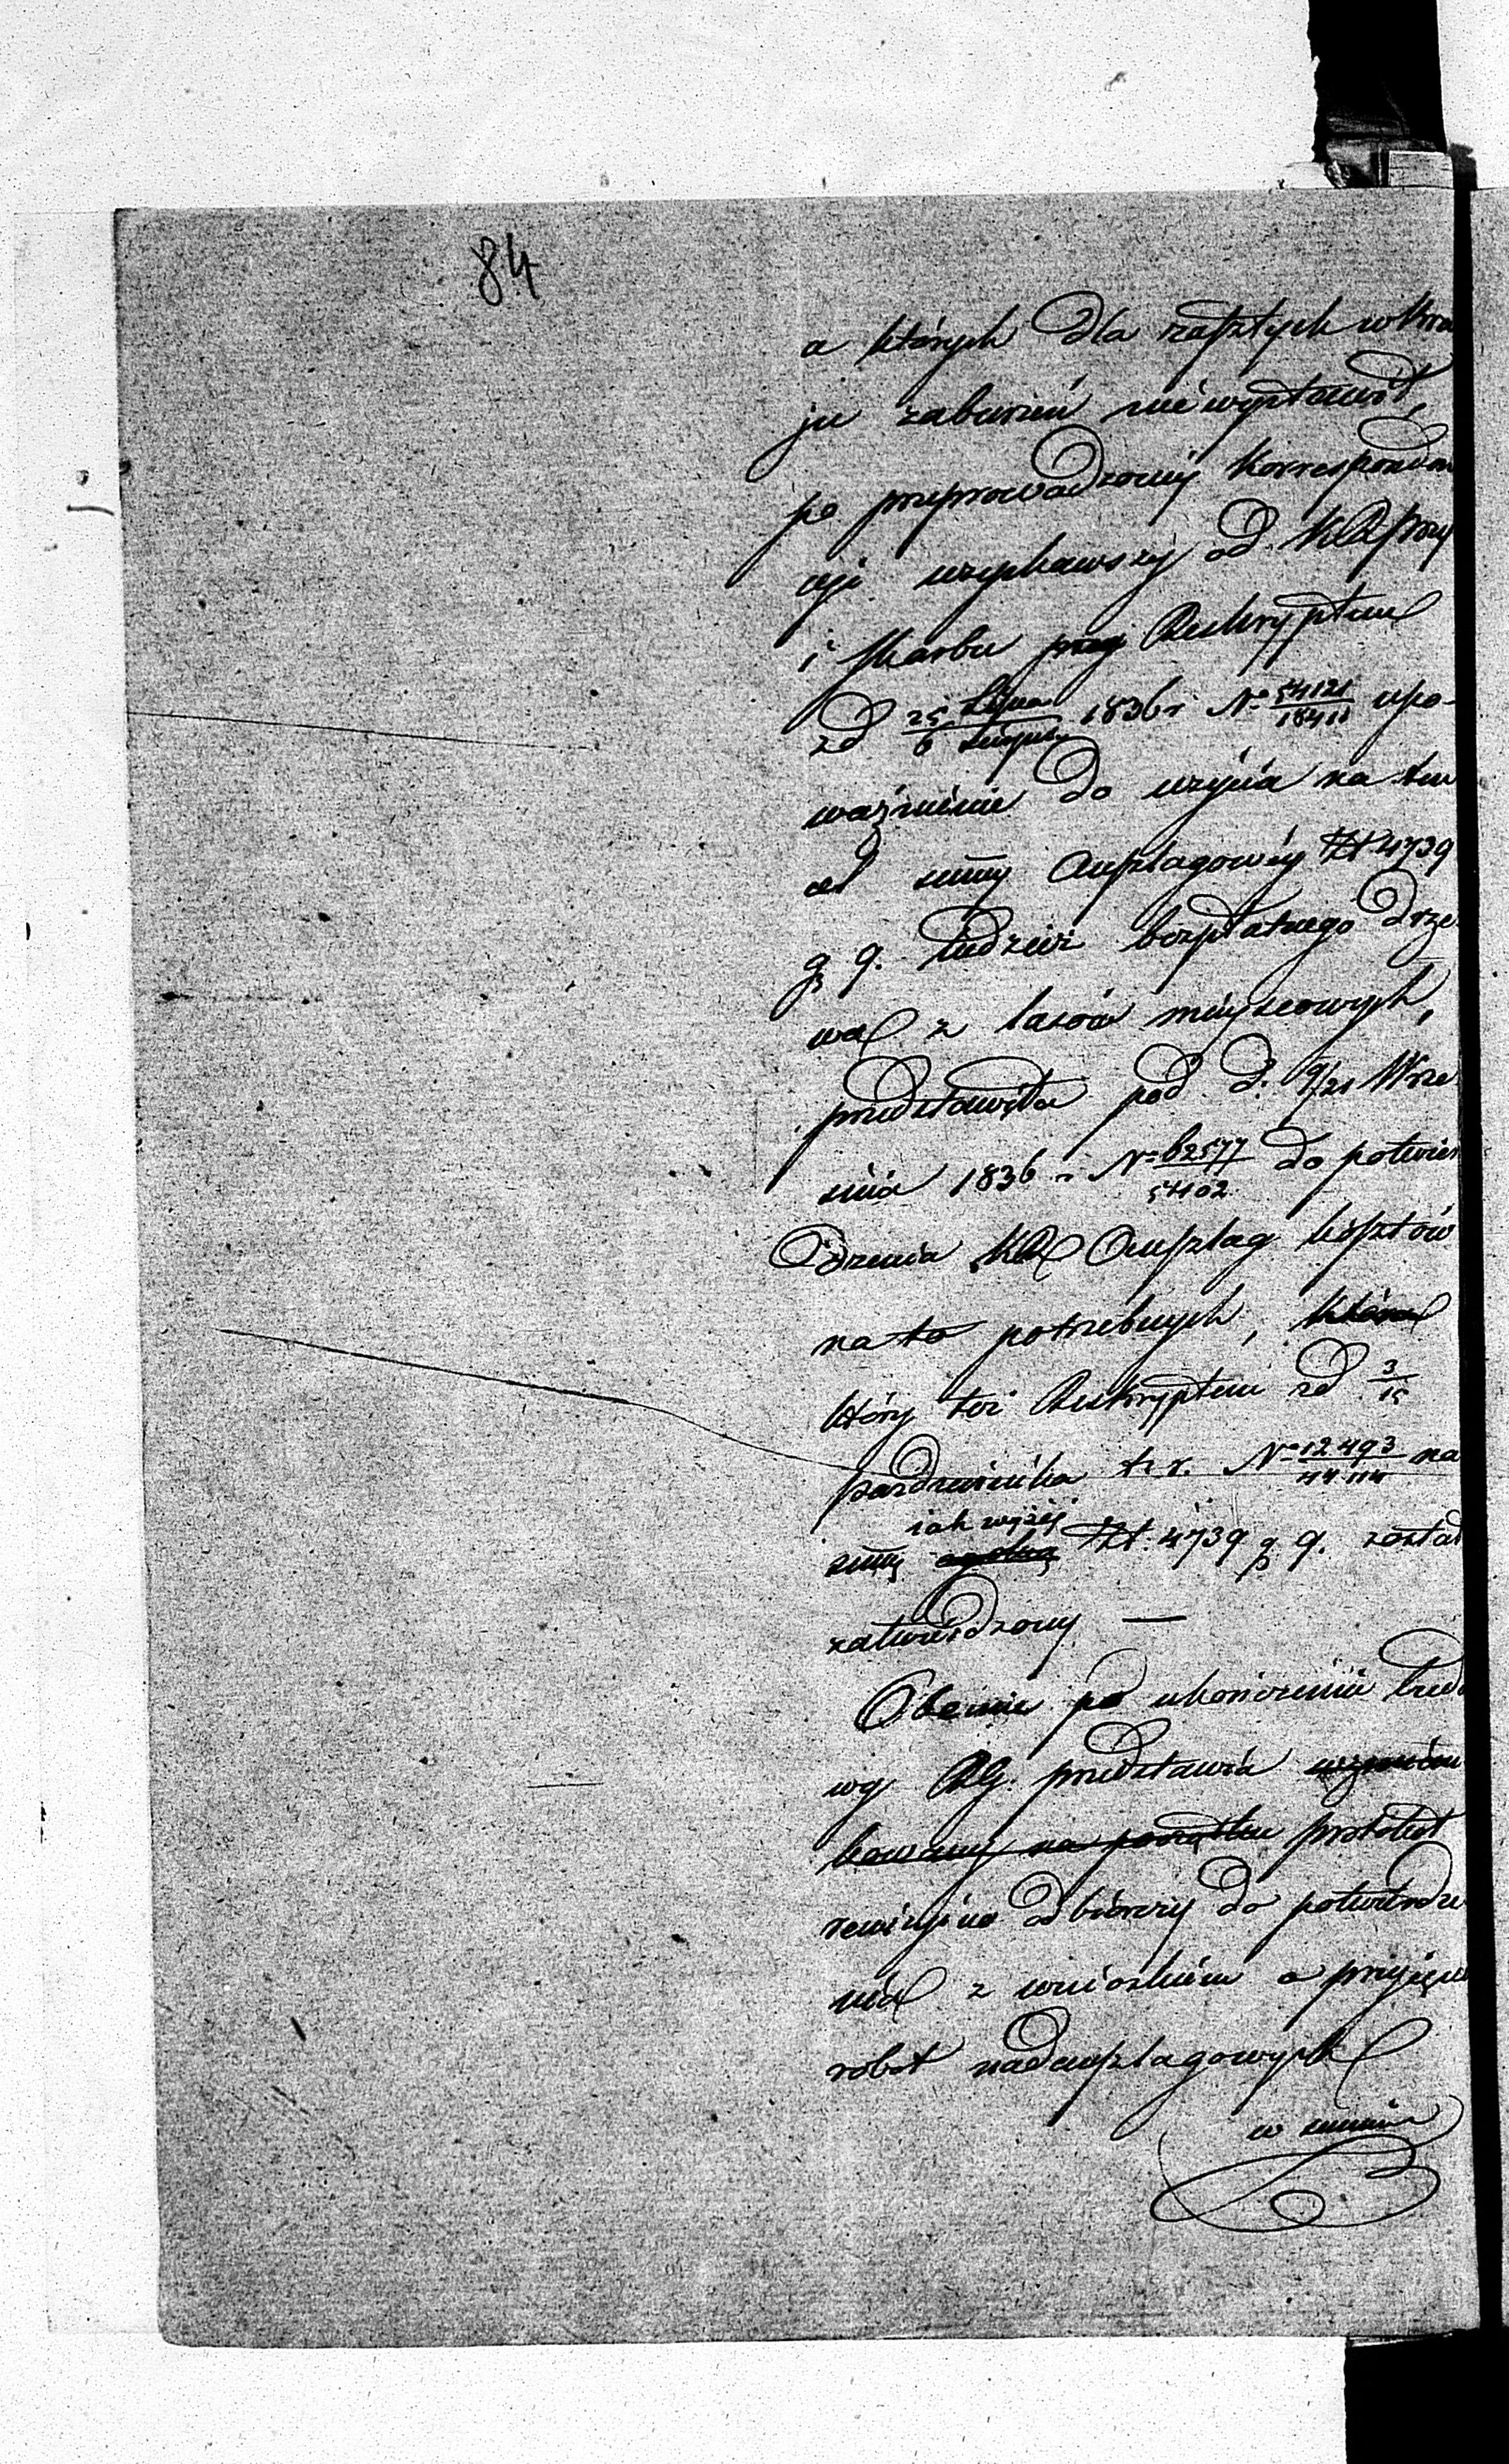 84
a których dla zaszłych w Kra
ju zaburzeń nie wystawił,
po przeprowadzoney Korresponden
cyi uzyskawszy od KRPrzy
i Skarbu przez Reskryptem
od 25 Lipca / 6 Sierpn. 1836 r N° 54121/18411 upo-
ważnienie do użycia na ten
cel summy Anszlagowéy Złt 4739
g 9. tudzież bezpłatnego drze
wa z lasów mieyscowych,
przedstawiła pod d. 9/21 Wrze
śnia 1836 r N° 62577/54102 do potwier
dzenia KR Anszlag kosztów
na to potrzebnych, która
który też Reskryptem od 3/15
Października t. r. N° 12493 na
jak wyżéy
summę ogólną Złt. 4739 g 9. został
zatwierdzony —
Obecnie po ukończeniu budo
wy RG. przedstawia
kowany na początku protokół
rewizyino odbiorczy do potwierdze
nia z wnioskiem o przyjęcie
robot nadanszlagowych
w summie